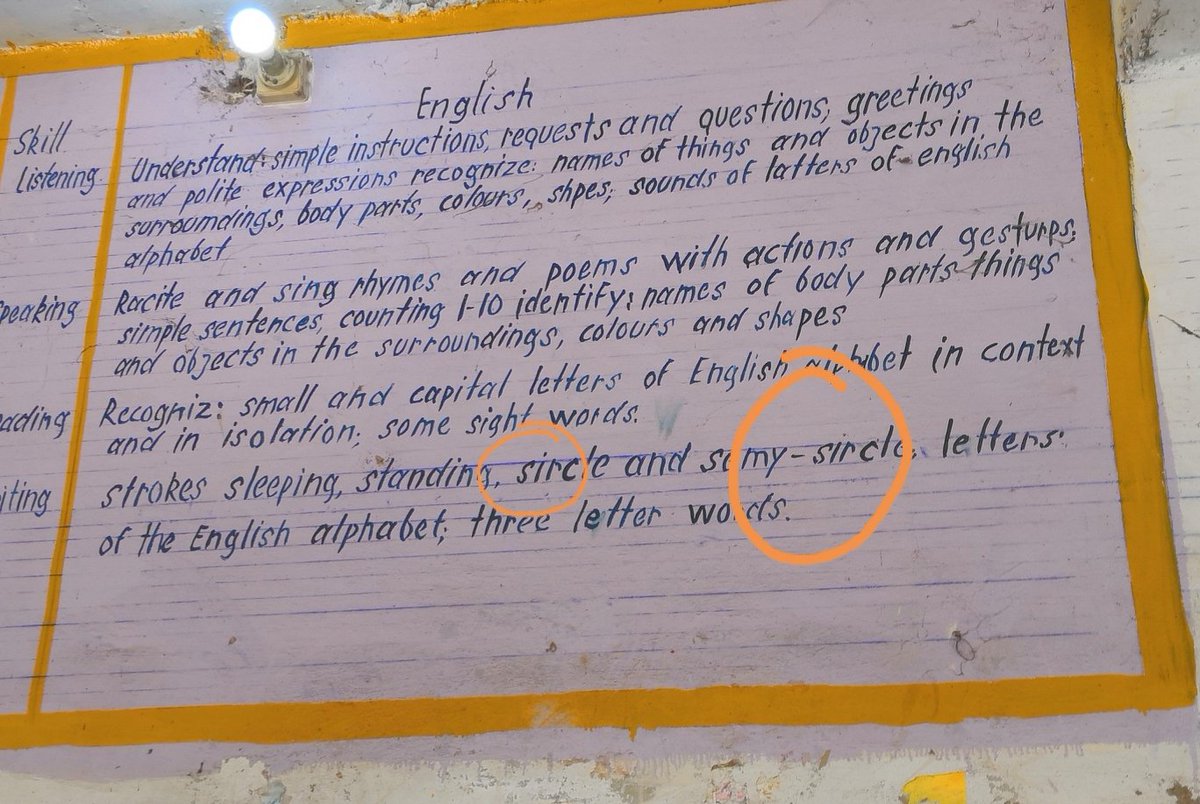 English
Skill
Listening Understand: simple instructions, requests and questions, greetings
and polite expressions recognize: names of things and objects in the
surroumdings, body parts, colours, shpes; sounds of latters of english
alphabet
peaking Racite and sing rhymes and poems with actions and gesturps;
simple sentences, counting 1-10 identify; names of body parts things
and objects in the surroundings, colours and shapes
ading Recogniz: small and capital letters of English alphabet in context
and in isolation; some sight words.
iting strokes sleeping, standing, sircle and semy-sircle, letters
of the English alphabet; three letter words.